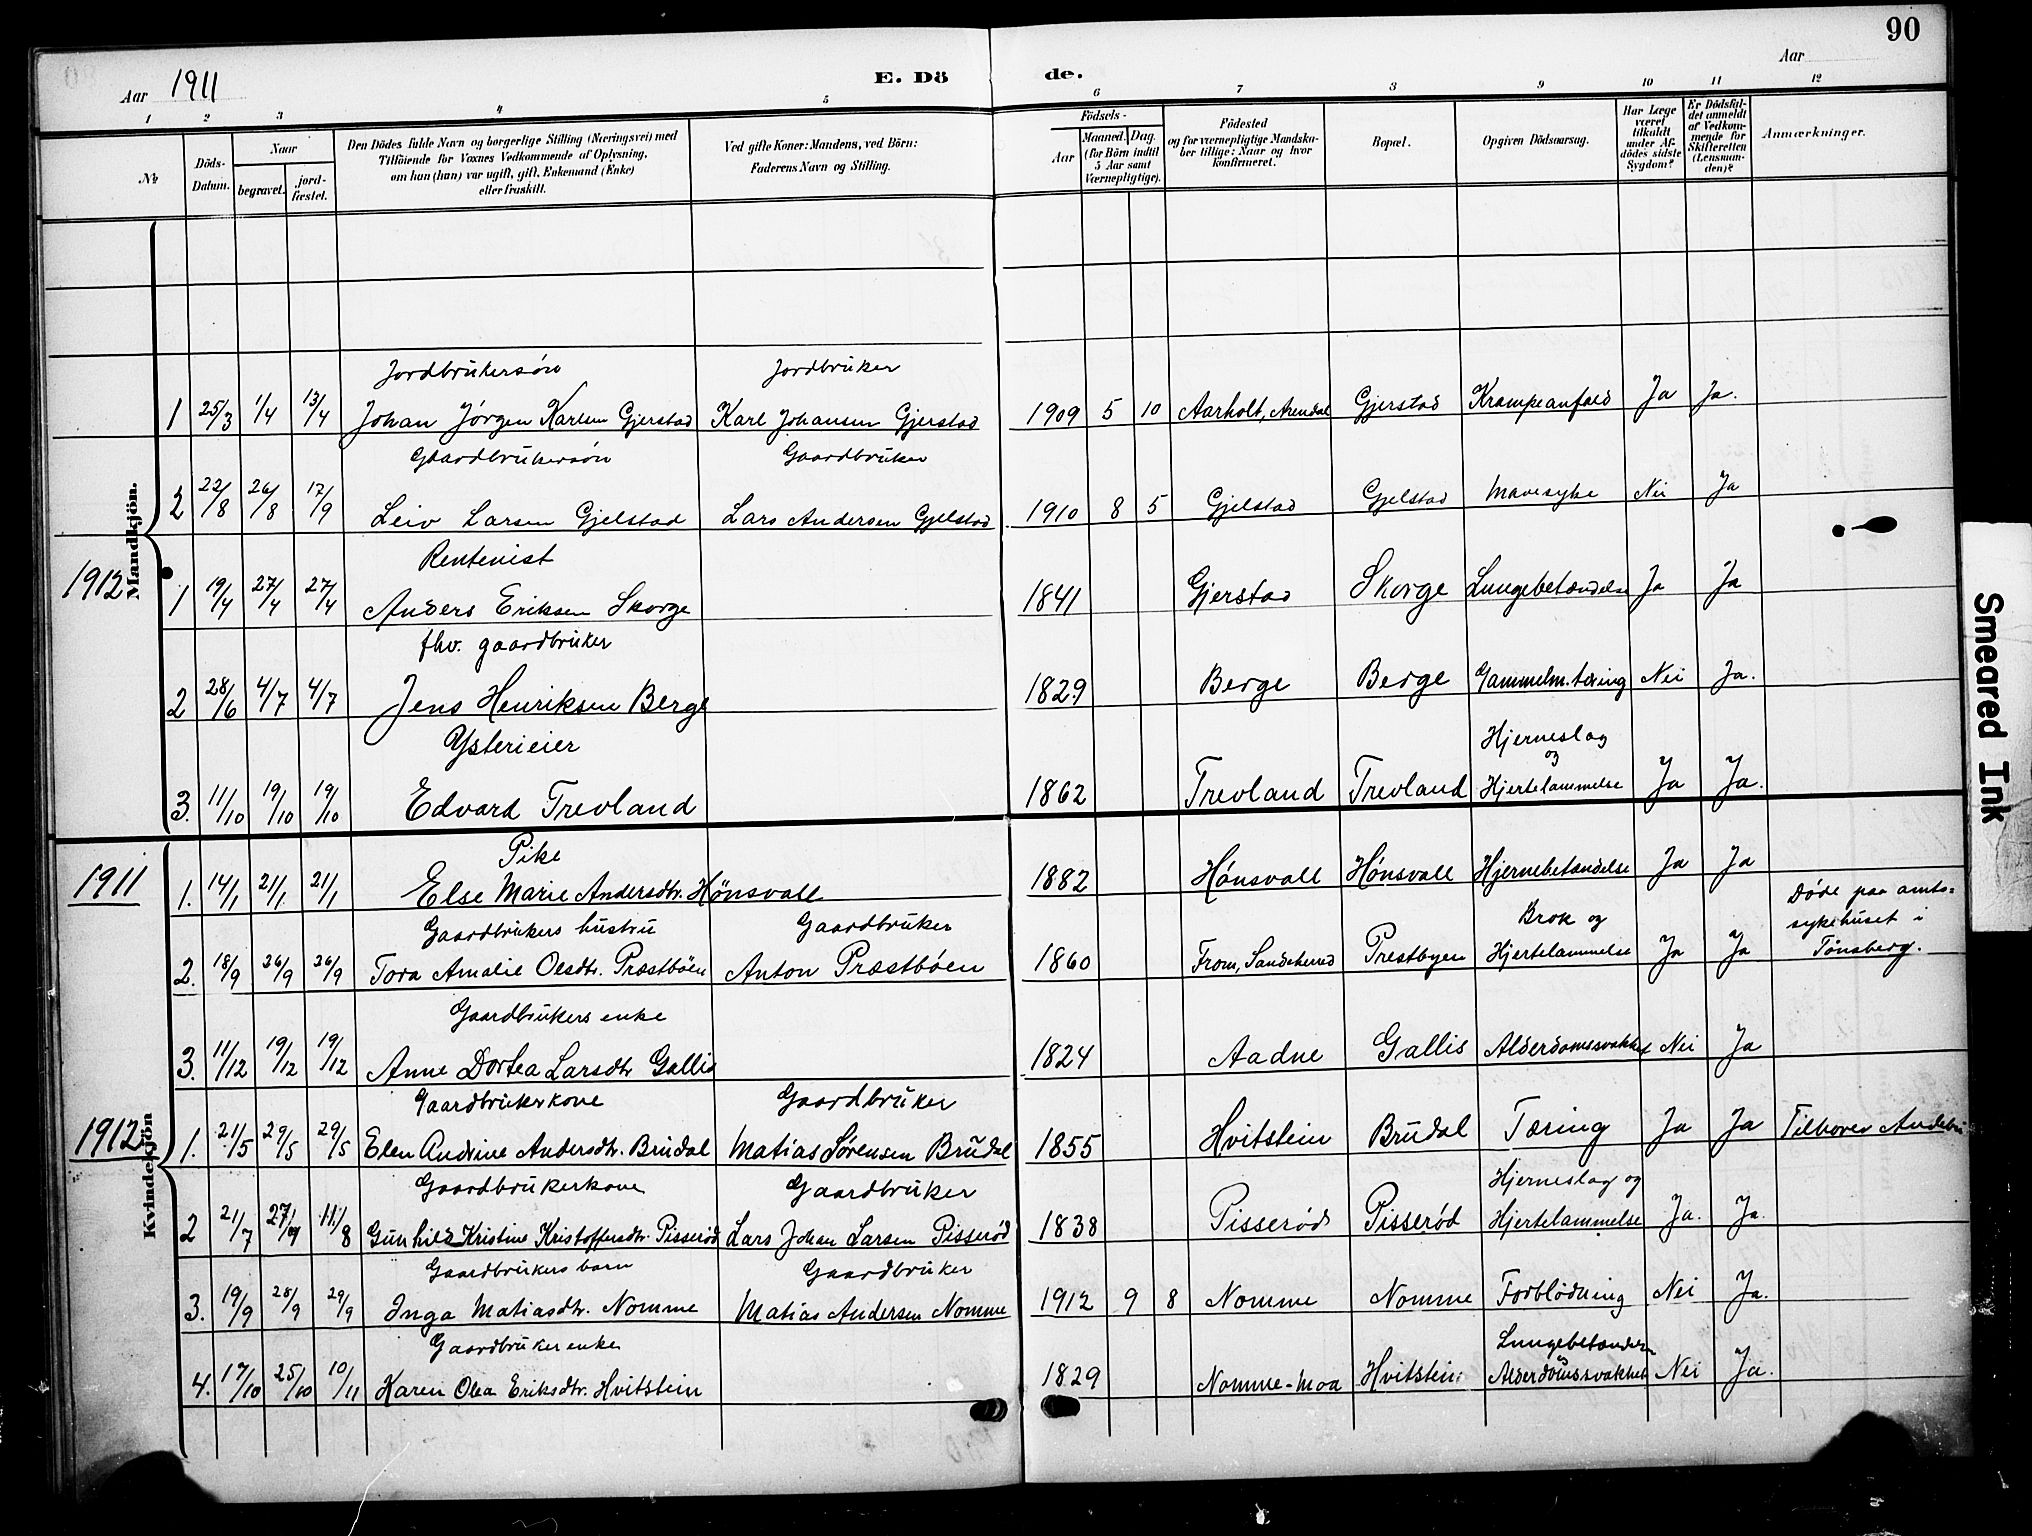 90
Aar 1911 E. Dö de. Aar
1 2 3 4 5 6 7 8 9 10 11 12
№
Döds-Datum.
Naar
begravet.
jord-fæstet.
Den Dödes fulde Navn og borgerlige Stilling (Næringsvei) med
Tilföiende for Voxnes Vedkommende af Oplysning,
om han (hun) var ugift, gift, Enkemand (Enke)
eller fraskilt.
Ved gifte Koner: Mandens, ved Börn:
Faderens Navn og Stilling.
Födsels-
Aar
Maaned. Dag.
(for Börn indtil
5 Aar samt
Værnepligtige).
Födested
og for værnepligtige Mandska-
ber tillige: Naar og hvor
konfirmeret.
Bopæl.
Opgiven Dödsaarsag.
Har Læge
været
tilkaldt
under Af-
dödes sidste
Sygdom?
Er Dödsfal-
det anmeldt
af Vedkom-
mende for
Skifteretten
(Lensman-
den)?
Anmærkninger.
Mandkjön.
Jordbrukersøn Jordbruker
1 25/3 1/4 13/4 Johan Jörgen Karlsen Gjerstad Karl Johansen Gjerstad 1909 5 10 Aarholt, Arendal Gjerstad Krampeanfald Ja Ja.
Gaardbrukersøn Gaardbruker
2 22/8 26/8 17/9 Leiv Larsen Gjelstad Lars Andersen Gjelstad 1910 8 5 Gjelstad Gjelstad Mavesyke Nei Ja
1912
Rentenist
1 19/4 27/4 27/4 Anders Eriksen Skorge 1841 Gjerstad Skorge Lungebetændelse Ja Ja
fhv. gaardbruker
2 28/6 4/7 4/7 Jens Henriksen Berge 1829 Berge Berge Gammelm. tæring Nei Ja.
Ysterieier Hjerneslag
og
3. 11/10 19/10 19/10 Edvard Trevland 1862 Trevland Trevland Hjertelammelse Ja Ja.
Kvindekjön
1911
Pike
1. 14/1 21/1. 21/1 Else Marie Andersdtr. Hönsvall 1882 Hønsvall Hønsvall Hjernebetændelse Ja Ja
Gaardbrukers hustru Gaardbruker Brok og Døde paa amts=
sykehuset i
2. 18/9 26/9 26/9 Tora Amalie Olsdtr. Præstbøen Anton Præstbøen 1860 From, Sandeherred Prestbyen Hjertelammelse Ja Ja Tønsberg.
Gaardbrukers enke
3. 11/12 19/12 19/12 Anne Dortea Larsdtr Gallis 1824 Aadne Gallis Alderdomssvakhet Nei Ja
1912
Gaardbrukerkone Gaardbruker
1. 21/5 29/5 29/5 Elen Andrine Andersdtr. Brudal Matias Sørensen Brudal 1855 Hvitstein Brudal Tæring Ja Ja Tilhører Andebu
Gaardbrukerkone Gaardbruker Hjerneslag og
2 21/7 27/9 11/8 Gunhild Kristine Kristoffersdtr. Pisserød Lars Johan Larsen Pisserød 1838 Pisserød Pisserød Hjertelammelse Ja. Ja.
Gaardbrukers barn Gaardbruker
3. 19/9 28/9 29/9 Inga Matiasdtr. Nomme Matias Andersen Nomme 1912 9 8 Nomme Nomme Forblødning Nei Ja.
Gaardbruker enke Lungebetændelse
4. 17/10 25/10 10/11 Karen Olea Eriksdtr. Hvitstein 1829 Nomme-moa Hvitstein Alderdomssvakhet Nei Ja.
Smeared Ink